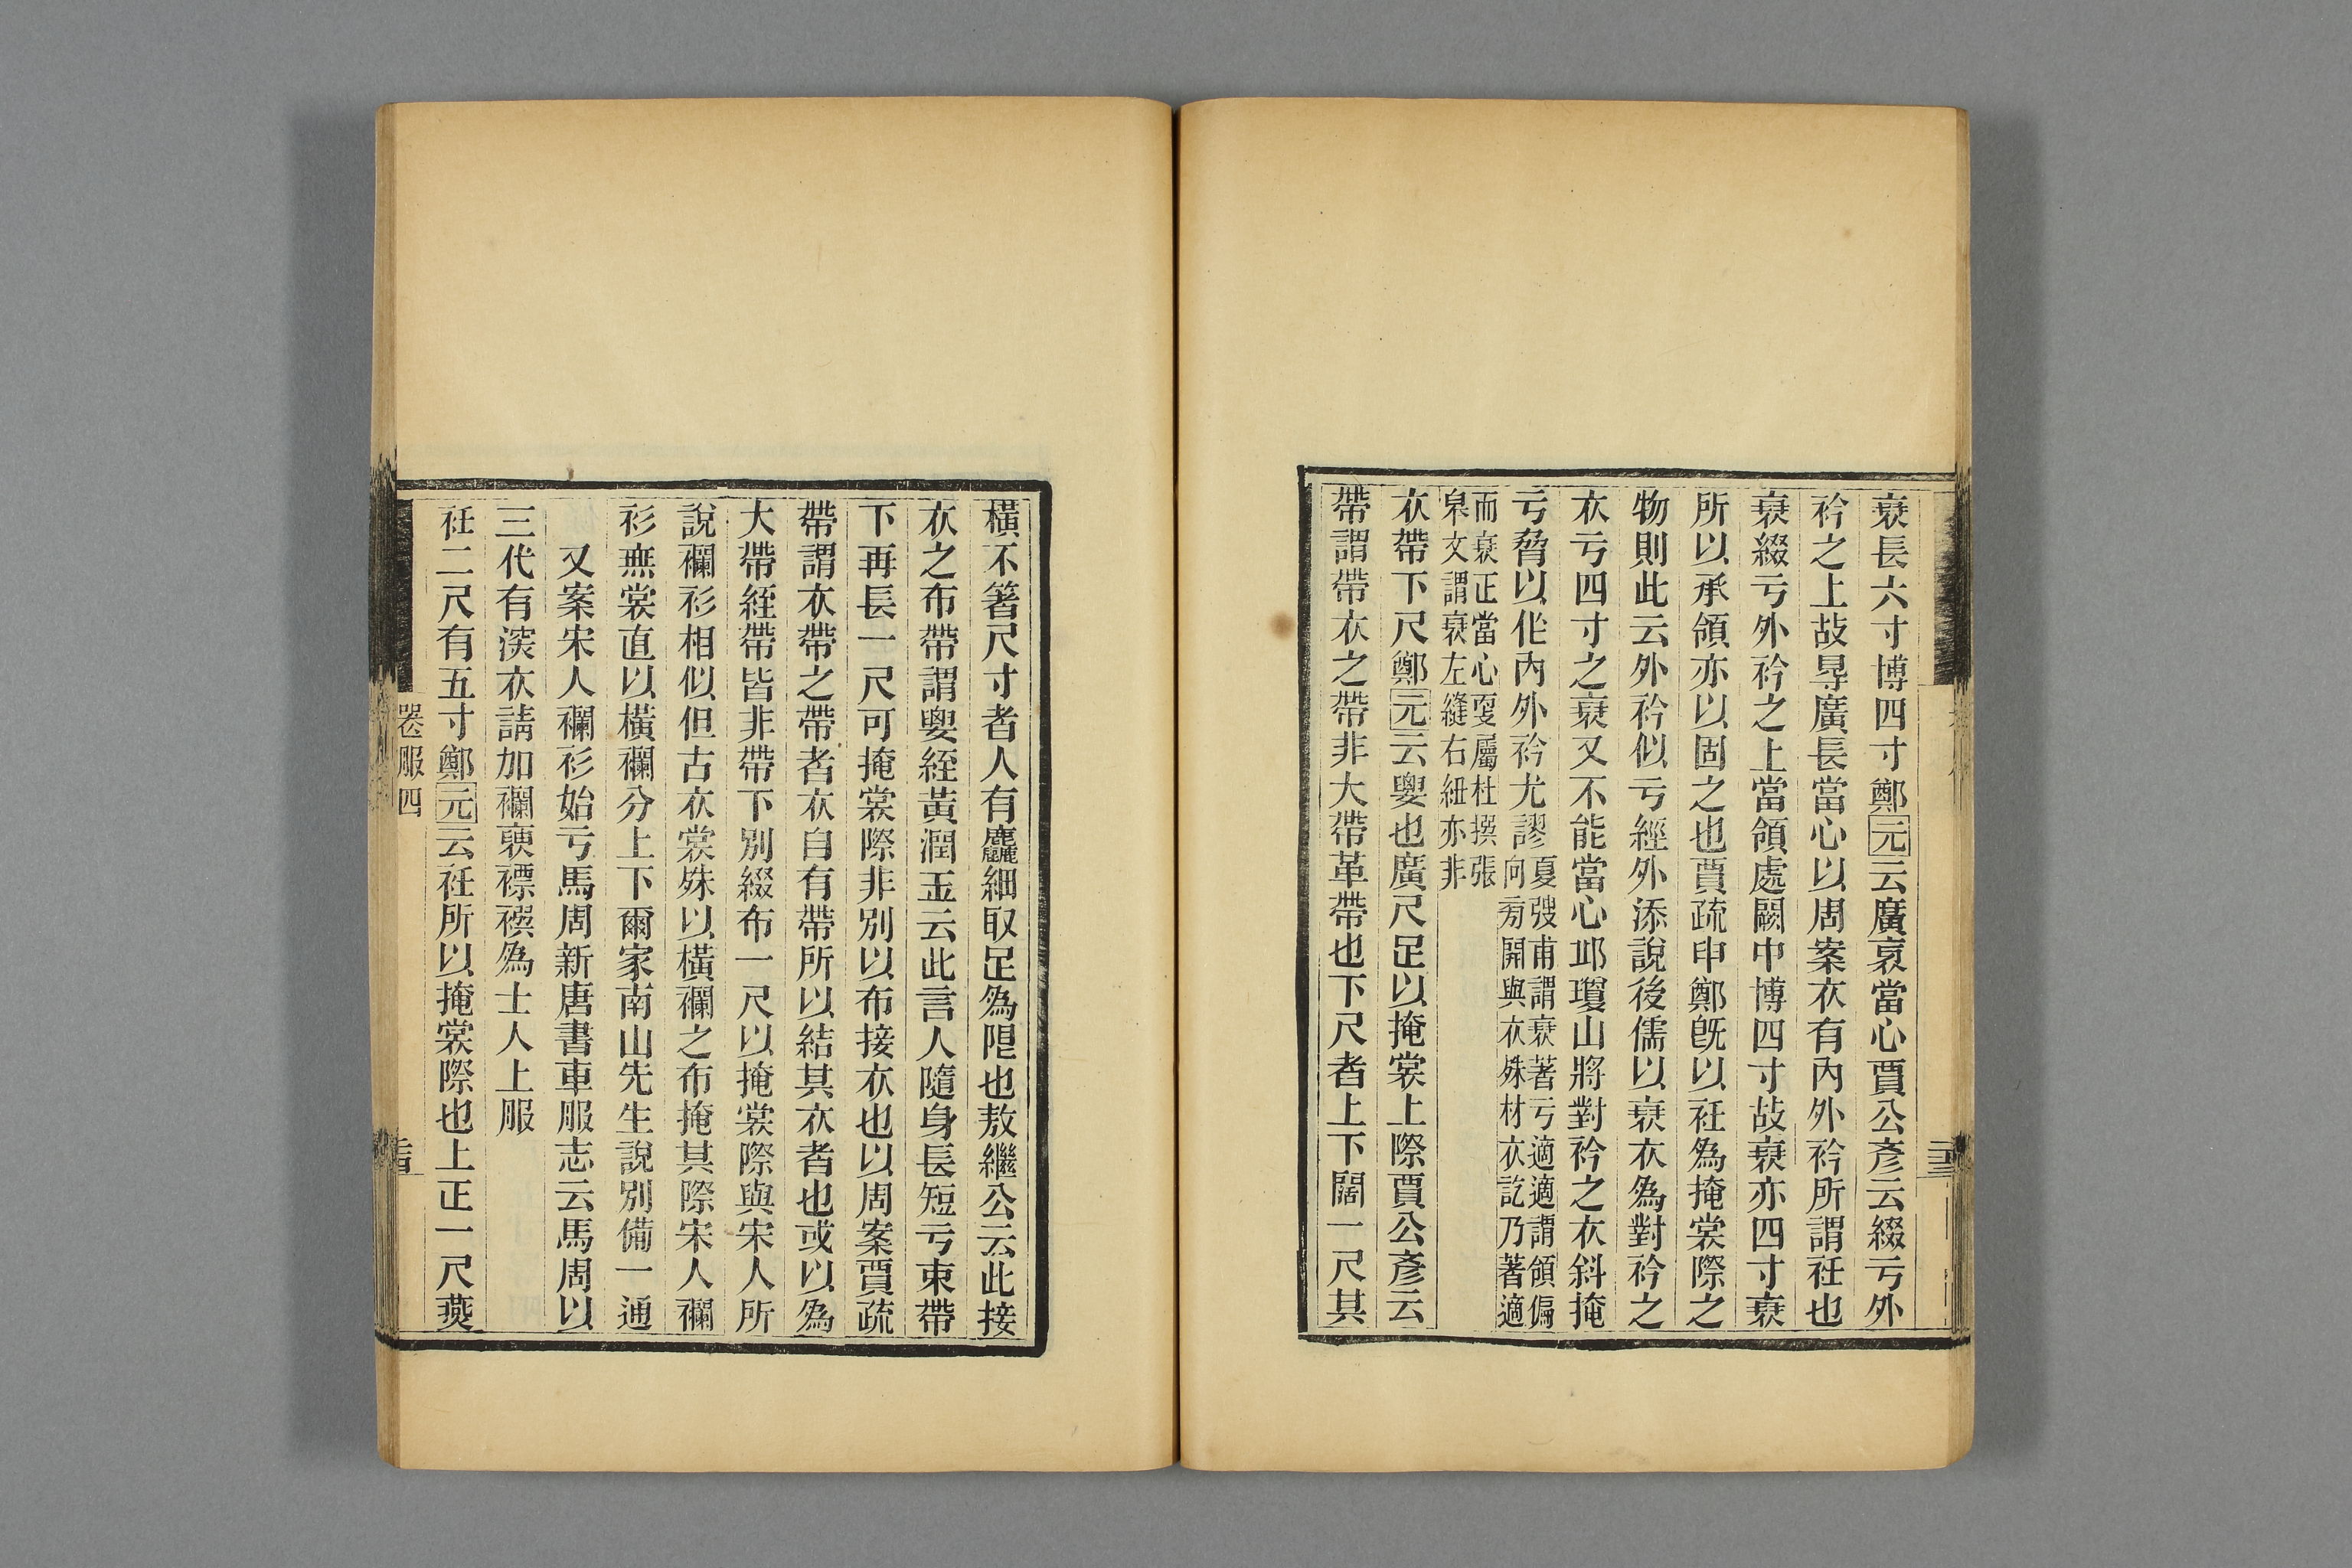 衰長六寸博四寸鄭元云廣袤當心賈公彥云綴亏外
衿之上故㝵廣長當心以周案衣有內外衿所謂衽也
衰綴亏外衿之上當領處闕中博四寸故衰亦四寸衰
所以承領亦以固之也賈疏申鄭旣以衽為掩裳際之
物則此云外衿似亏經外添說後儒以衰衣為對衿之
衣亏四寸之衰又不能當心邱瓊山將對衿之衣斜掩
亏脅以作內外衿尤謬夏弢甫謂衰著亏適適謂領偏向旁開與衣殊材衣訖乃著適
而衰正當心㪅屬杜撰張皋文謂衰左縫右紐亦非
衣帶下尺鄭元云𦥼也廣尺足以掩裳上際賈公彥云
帶謂帶衣之帶非大帶革帶也下尺者上下闊一尺其
橫不箸尺寸者人有麤細取足為限也敖繼公云此接
衣之布帶謂𦥼絰黃潤玉云此言人隨身長短亏束帶
下再長一尺可掩裳際非別以布接衣也以周案賈疏
帶謂衣帶之帶者衣自有帶所以結其衣者也或以為
大帶絰帶皆非帶下別綴布一尺以掩裳際與宋人所
說襴衫相似但古衣裳殊以橫襴之布掩其際宋人襴
衫無裳直以橫襴分上下爾家南山先生說別備一通
又案宋人襴衫始亏馬周新唐書車服志云馬周以
三代有深衣請加襴裦褾襈為士人上服
衽二尺有五寸鄭元云衽所以掩裳際也上正一尺燕
喪服四